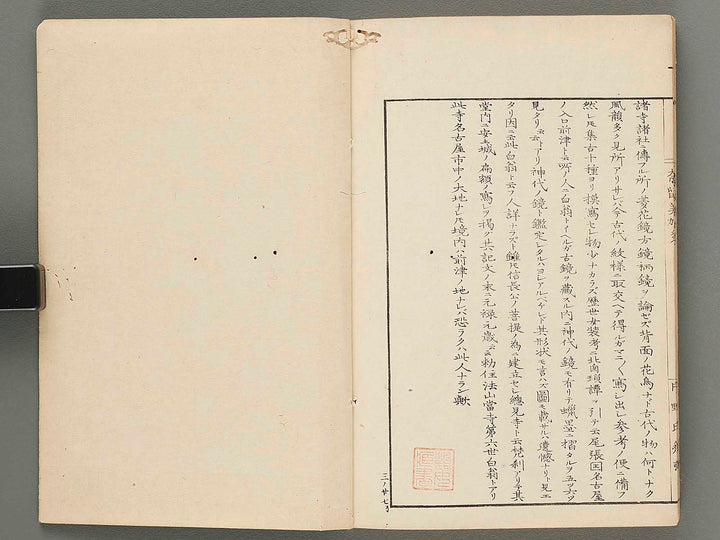 諸寺諸社ニ傳フル所ノ菱花鏡方鏡柄鏡ヲ論セズ背面ノ花鳥ナド古代ノ物ハ何トナク
風韻多ク見所アリサレバ今古代ノ紋様ニ取交ヘテ得ルガマニ〱寫レ出レ参考ノ便ニ備フ
然レ𪜈集古十種ヨリ摸寫セレ物少ナカラズ歴世女装考ニ北窗瑣譚ヲ引テ云尾張国名古屋
ノ入口前津ト云所ノ人ニ白翁トイヘルガ古鏡ヲ藏スル内ニ神代ノ鏡モ有リテ蠟墨ニ摺タルヲ五ツ六ツ
見タリ云云トアリ神代ノ鏡ト鑑定レタルハヨレアルベケレド其形状モ言ハズ圖モ載サルハ遺憾ナリト見エ
タリ因ニ云此白翁ト云フ人詳ナラズト雖𪜈信長公ノ菩提ノ為ニ建立セレ總見寺ト云梵刹アリ今其
堂内ニ安土城ノ扁額ノ寫レヲ掲グ其記文ノ末ニ元禄元歳云云勅住法山當寺第六世白翁トアリ
此寺名古屋市中ノ大地ナレ𪜈境内ハ前津ノ地ナレバ恐ラクハ此人ナラン歟
三ノ廿七